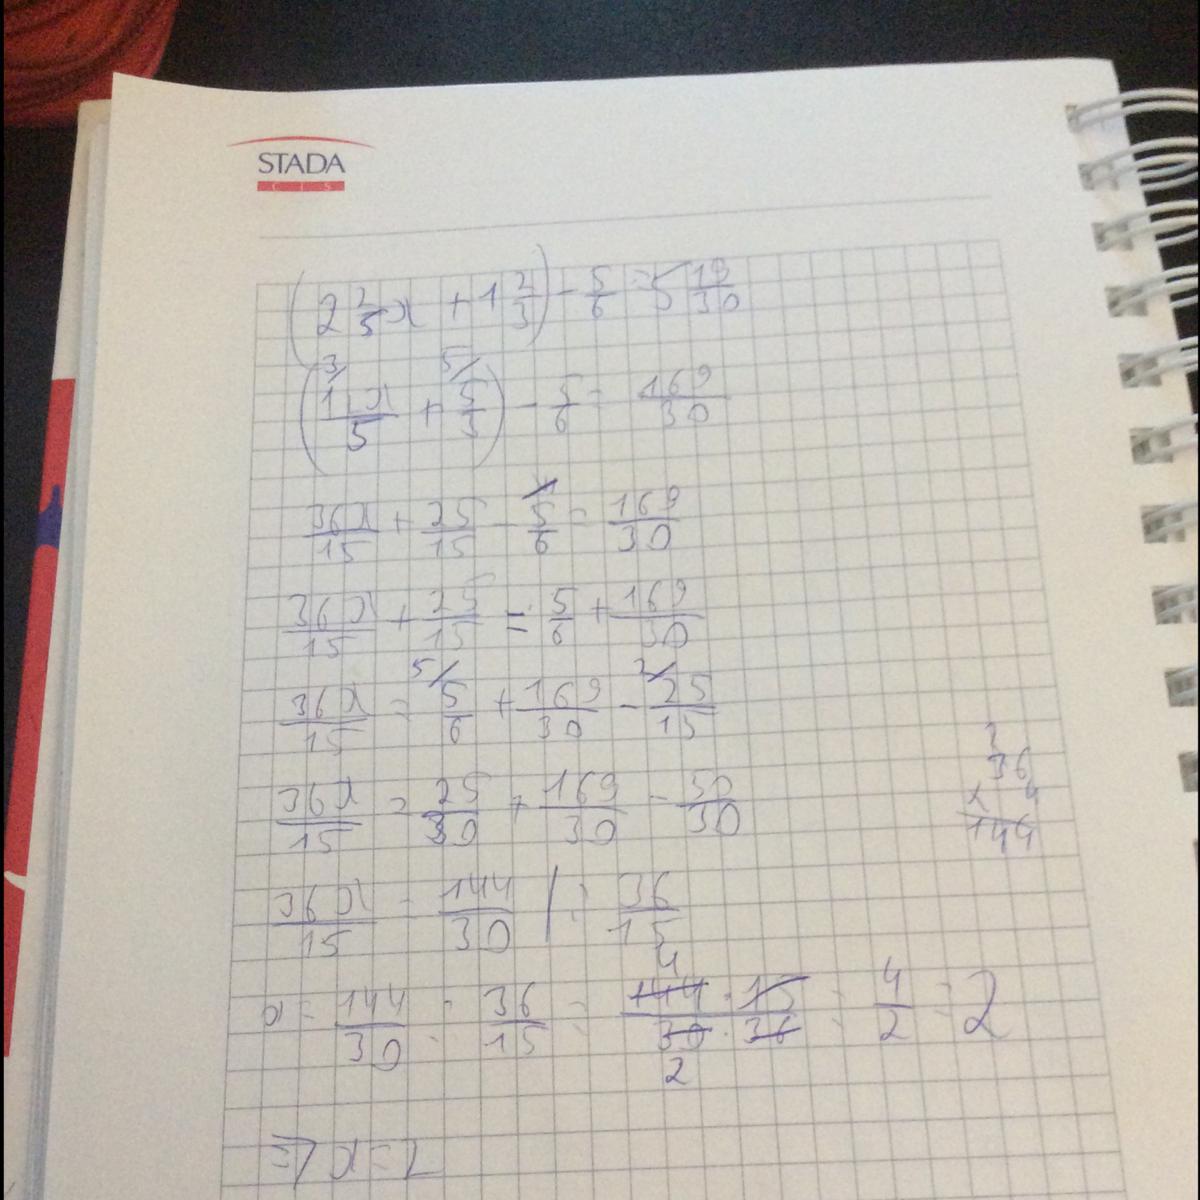 STADA
CIS
(2 2/5 x + 1 2/3) - 5/6 = 5 19/30
(12x/5 + 5/3) - 5/6 = 169/30
36x/15 + 25/15 - 5/6 = 169/30
36x/15 + 25/15 = 5/6 + 169/30
36x/15 = 5/6 + 169/30 - 25/15
36x/15 = 25/30 + 169/30 - 50/30
36 x 4 144
36x/15 = 144/30 | : 36/15
x = 144/30 : 36/15 = 144·15/30·36 = 4/2 = 2
=> x = 2